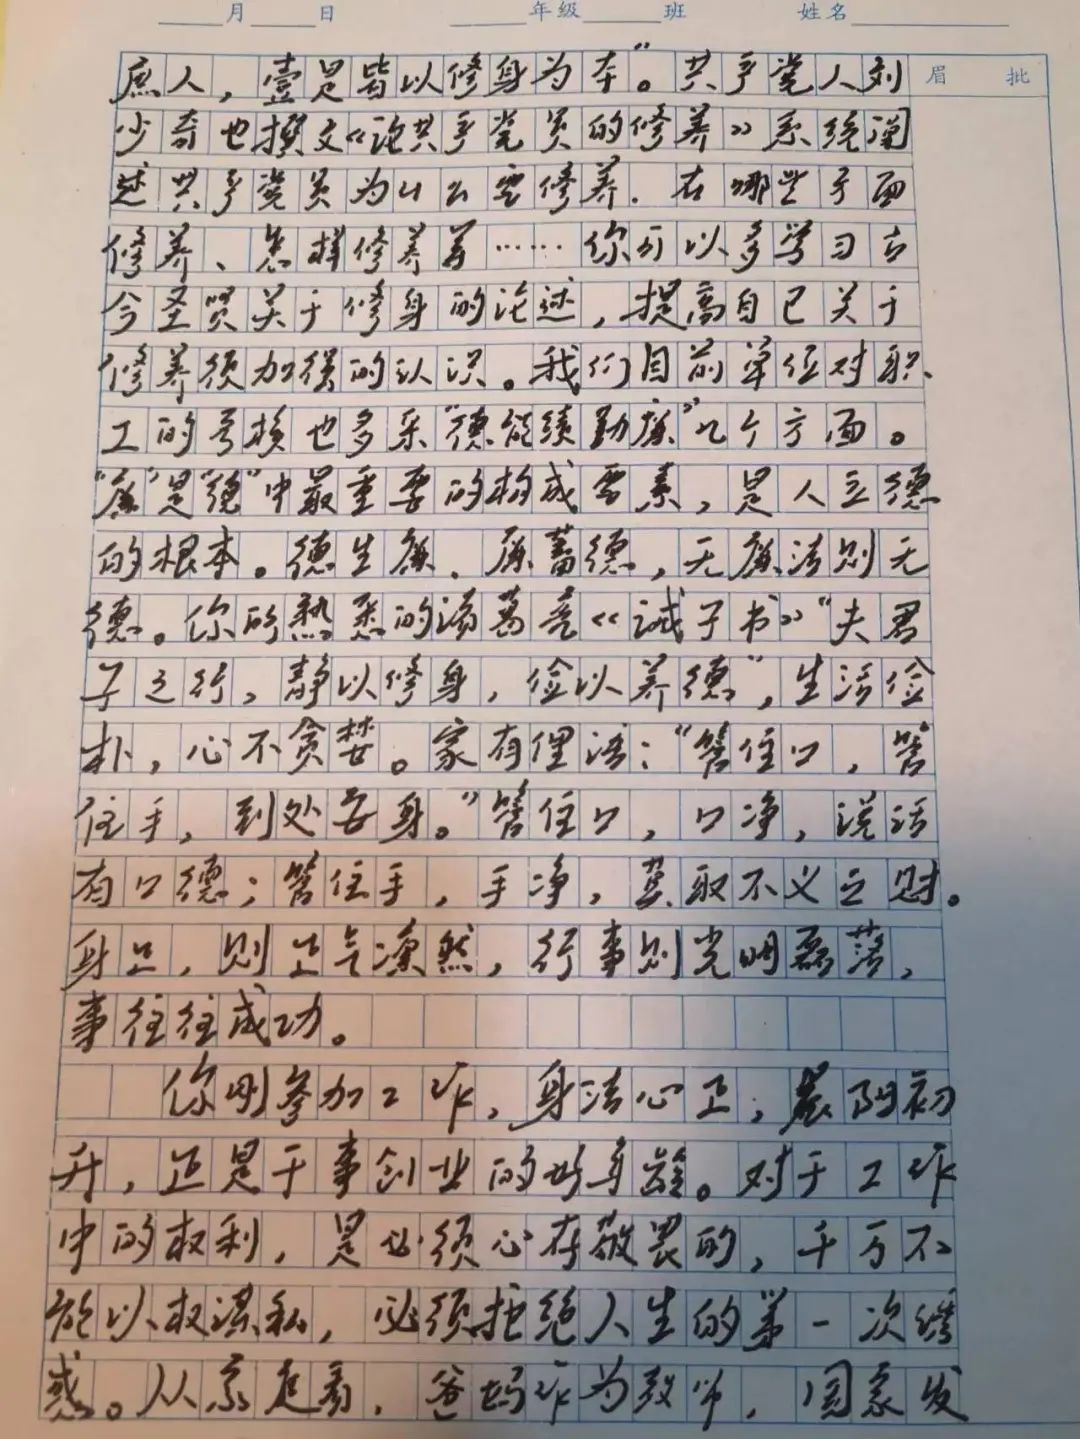 月 日 年级 班 姓名
眉 批
庶人，壹是皆以修身为本”。共产党人刘
少奇也撰文《论共产党员的修养》系统阐
述共产党员为什么要修养．在哪些方面
修养、怎样修养等……你可以多学习古
今圣贤关于修身的论述，提高自己关于
修养须加强的认识。我们目前单位对职
工的考核也多采“德能绩勤廉”几个方面。
“廉”是“德”中最重要的构成要素，是人立德
的根本。德生廉．廉蓄德，无廉洁则无
德。你的熟悉的诸葛亮《诫子书》“夫君
子之行，静以修身，俭以养德”，生活俭
朴，心不贪婪。家有俚语：“管住口，管
住手，到处安身。”管住口，口净，说话
有口德；管住手，手净，莫取不义之财。
身正，则正气凛然，行事则光明磊落，
事往往成功。
你刚参加工作，身洁心正，晨阳初
升，正是干事创业的好年龄。对于工作
中的权利，是必须心存敬畏的，千万不
能以权谋私，必须拒绝人生的第一次诱
惑。从家庭看．爸妈作为教师，国家发